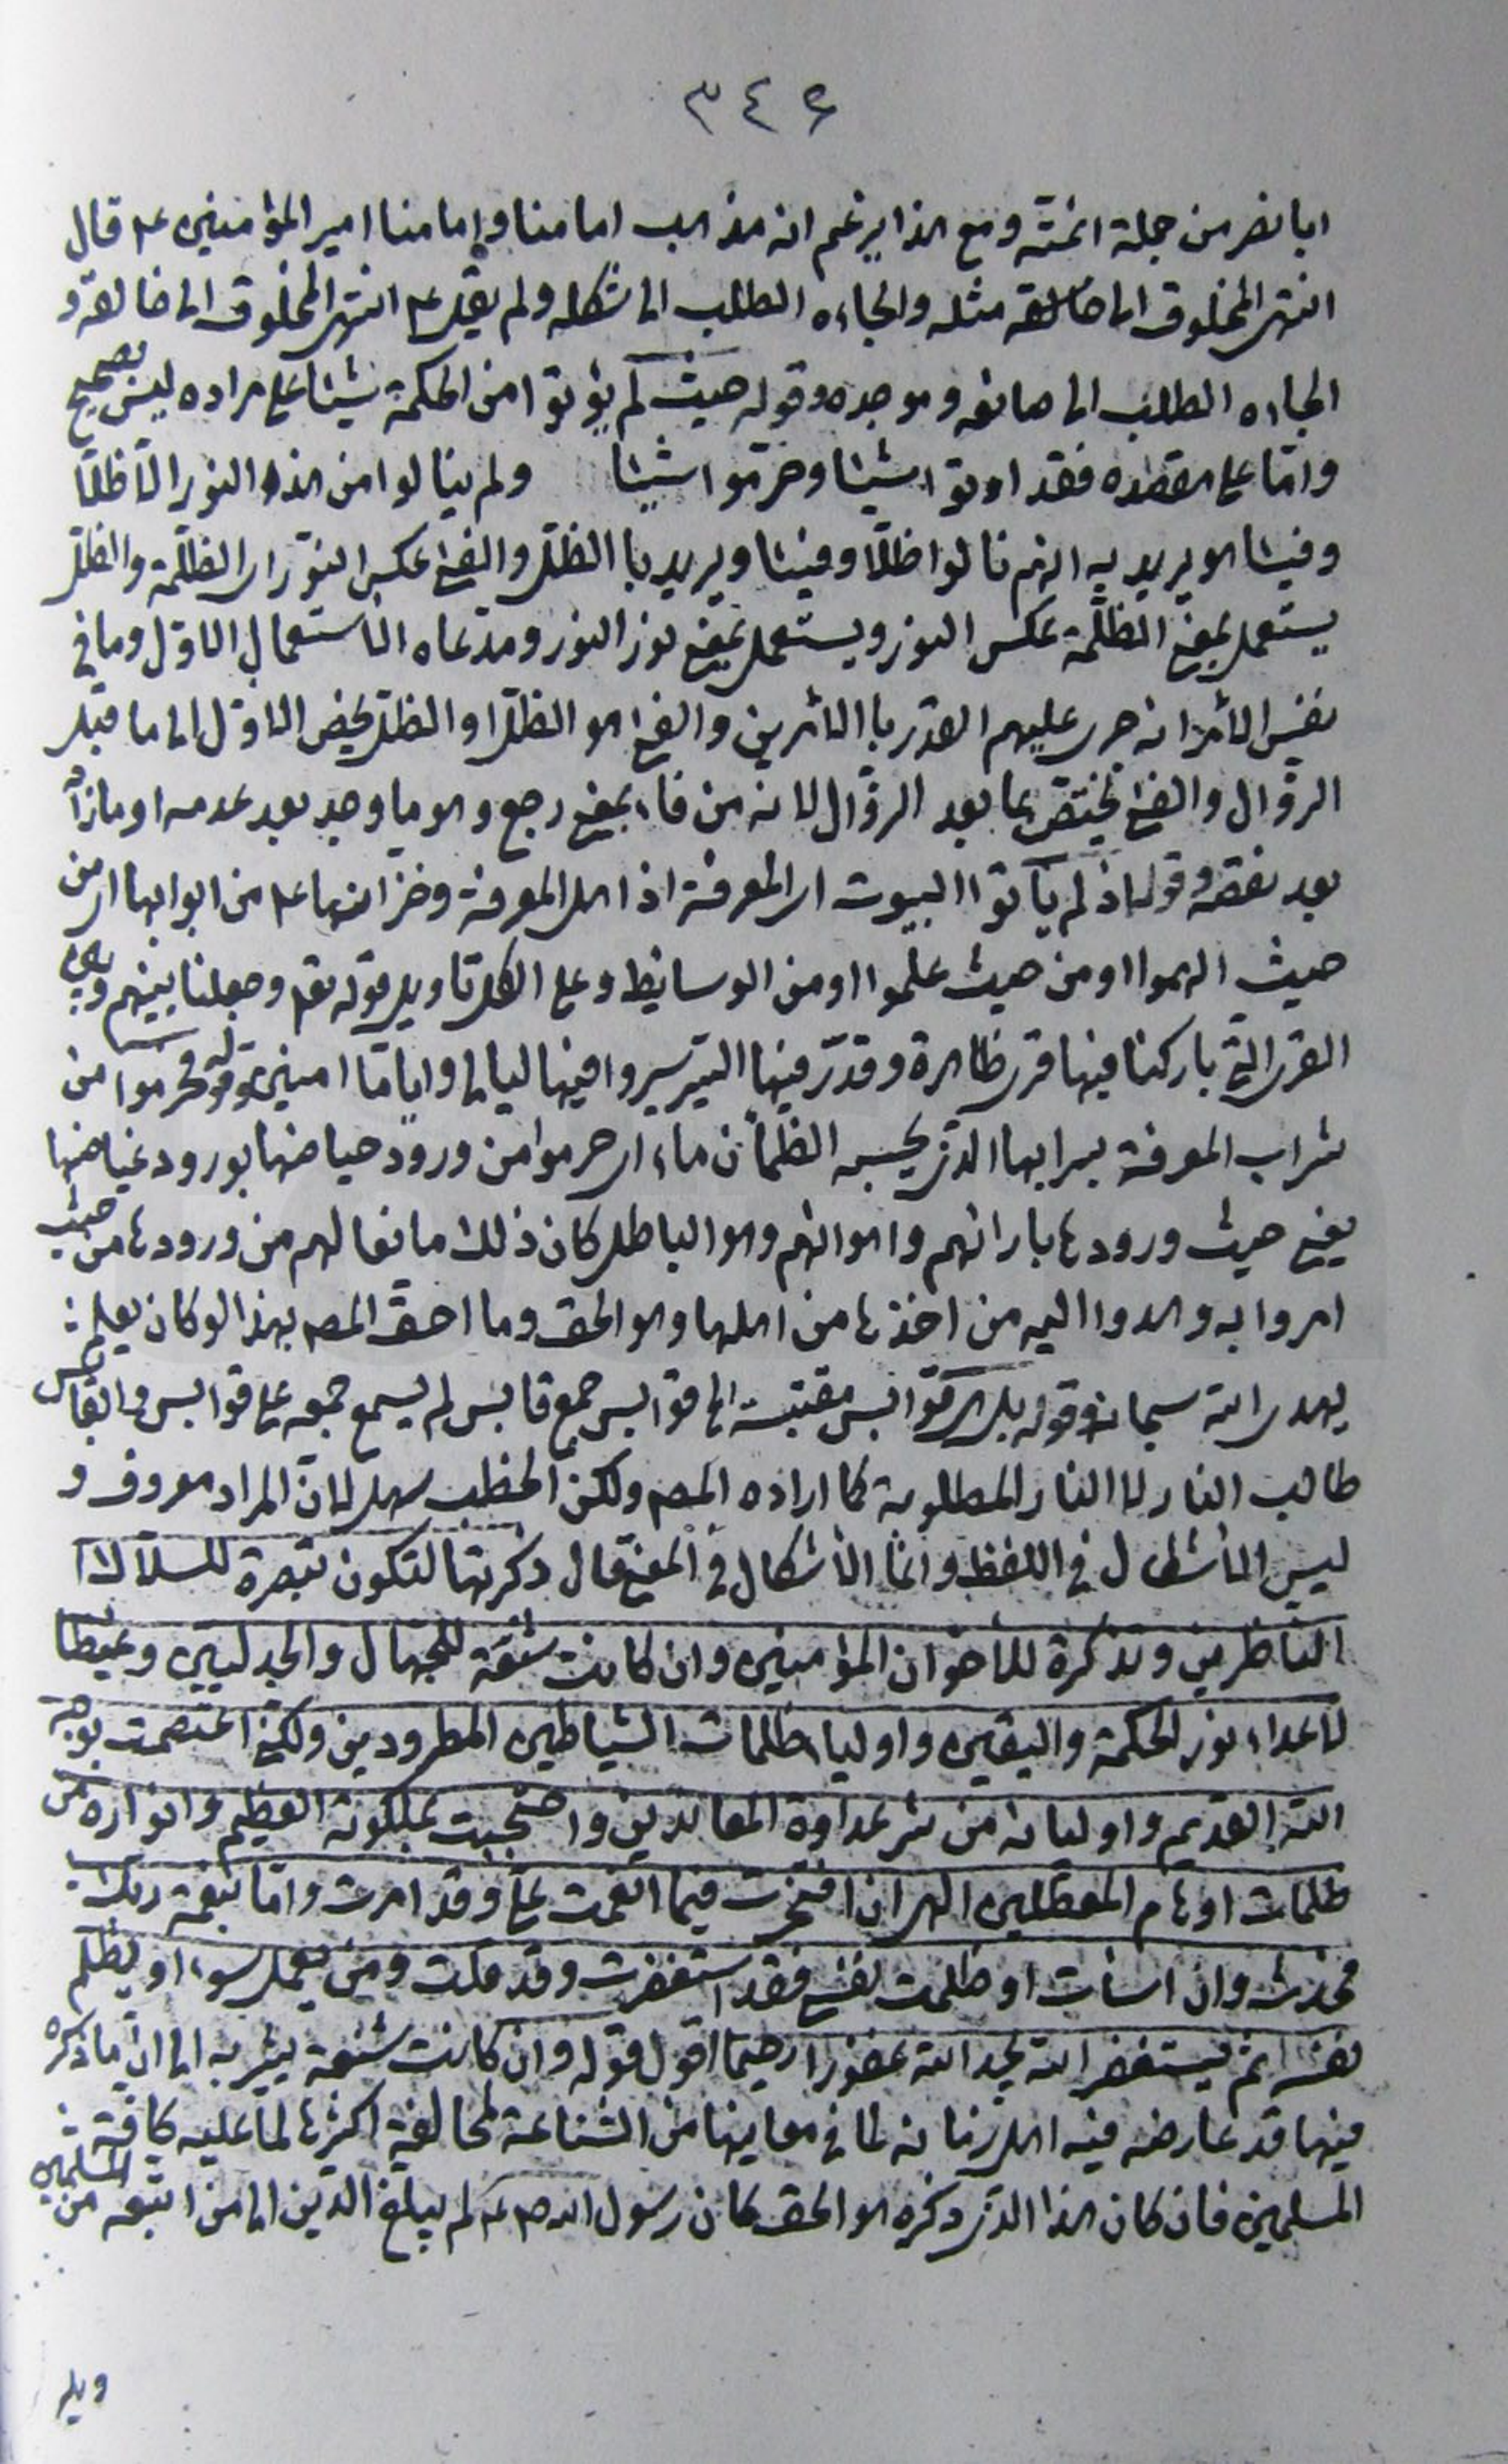 ٣٤٤
ابا نصر من جملة ائمته ومع هذا يزعم انه مذهب امامنا وامامنا امير المؤمنين ع قال
انتهى المخلوق الى مثله والجاءه الطلب الى شكله ولم يقل ع انتهى المخلوق الى خالقه و
الجاءه الطلب الى صانعه وموجده وقوله حيث لم يؤتوا من الحكمة شيئا على مراده ليس بصحيح
وامّا على مقصده فقد اوتوا شيئا وحرّموا شيئا ولم ينالوا من هذا النور الّا ظلّا
وفيئا هو يريد به انهم نالوا ظلّا وفيئا ويريد بالظلّ والفئ عكس النّور اى الظلّمة والظلّ
يستعمل بمعنى الظلّمة عكس النور ويستعمل بمعنى نور النور ومدعاه الأستعمال الاوّل وما في
نفس الأمر انه جرى عليهم القدر بالأمرين والفئ هو الظلّ او الظلّ يخصّ الاوّل الى ما قبل
الزوّال والفئ يختصّ بما بعد الزوّال لانه من فاء بمعنى رجع وهو ما وجد بعد عدمه او مازاد
بعد نقصه وقوله اذ لم يأتوا البيوت اى المعرفة اذ اهل المعرفة وخزانها ع من ابوابها اى من
حيث الهموا او من حيث علموا او من الوسائط وعلى الكل تاويل قوله تعم وجعلنا بينهم وبين
القرى التي باركنا فيها قرى ظاهرة وقدّر فيها السّير سيروا فيها ليالى وايامّا امنين وقوله فحرموا من
شراب المعرفة بسرابها الذى يحسبه الظمأن ماء اى حرموا من ورود حياضها بورود غياضها
يعني حيث ورودها بارائهم واهوائهم وهو الباطل كان ذلك مانعا لهم من ورودها من حيث
امروا به وهدوا اليه من اخذها من اهلها وهو الحق وما احق المص بهذا لو كان يعلم
يهدى الله سبحانه وقوله بل هى قوابس مقتبسة الى قوابس جمع قابس لم يسمع جمعه على قوابس والقابس
طالب النار لا النار المطلوبة كما اراده المص ولكن الخطب سهل لانّ المراد معروف و
ليس الأشكال في اللفظ وانما الأشكال في المعنى قال ذكرتها لتكون تبصرة للسلّاك
الناظرين وتذكرة للأخوان المؤمنين وان كانت شنعة للجهال والجدليين وغيظا
لاعداء نور الحكمة واليقين واولياء ظلمات الشياطين المطرودين ولكنى اعتصمت بوجه
الله القديم واوليائه من شر عداوة المعاندين واحتجبت بملكوته العظيم وانواره من
ظلمات اوهام المعطلين الهى ان افتخرت فيما انعمت علىّ وقد امرت وامّا بنعمة ربك
فحدّث وان اسأت او ظلمت نفسى فقد استغفرت وقد قلت ومن يعمل سوء او يظلم
نفسه ثم يستغفر الله يجد الله غفورا رحيما اقول قوله وان كانت شنعة يشير به الى ان ما ذكره
فيها قد عارضه فيه اهل زمانه لما في معاينها من الشناعة لمخالفة اكثرها لما عليه كافة
المسلمين فان كان هذا الذى ذكره هو الحق كان رسول الله ص ع لم يبلغ الدين الى من اتبعه من المسلمين
ويل